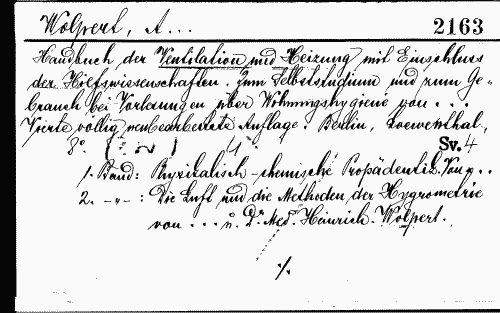 Wolpert, A...
2163
Handbuch der Ventilation und Heizung mit Einschluss
der Hilfswissenschaften. Zum Selbststudium und zum Ge-
brauch bei Vorlesungen über Wohnungshygiene von ...
Vierte völlig neubearbeitete Auflage. Berlin, Loewenthal,
8°.
Sv. 4
1. Band: Physikalisch-chemische Propädeutik. Von ...
2. -„- : Die Luft und die Methoden der Hygrometrie
von ... u. Dr. Med. Heinrich Wolpert.
./.